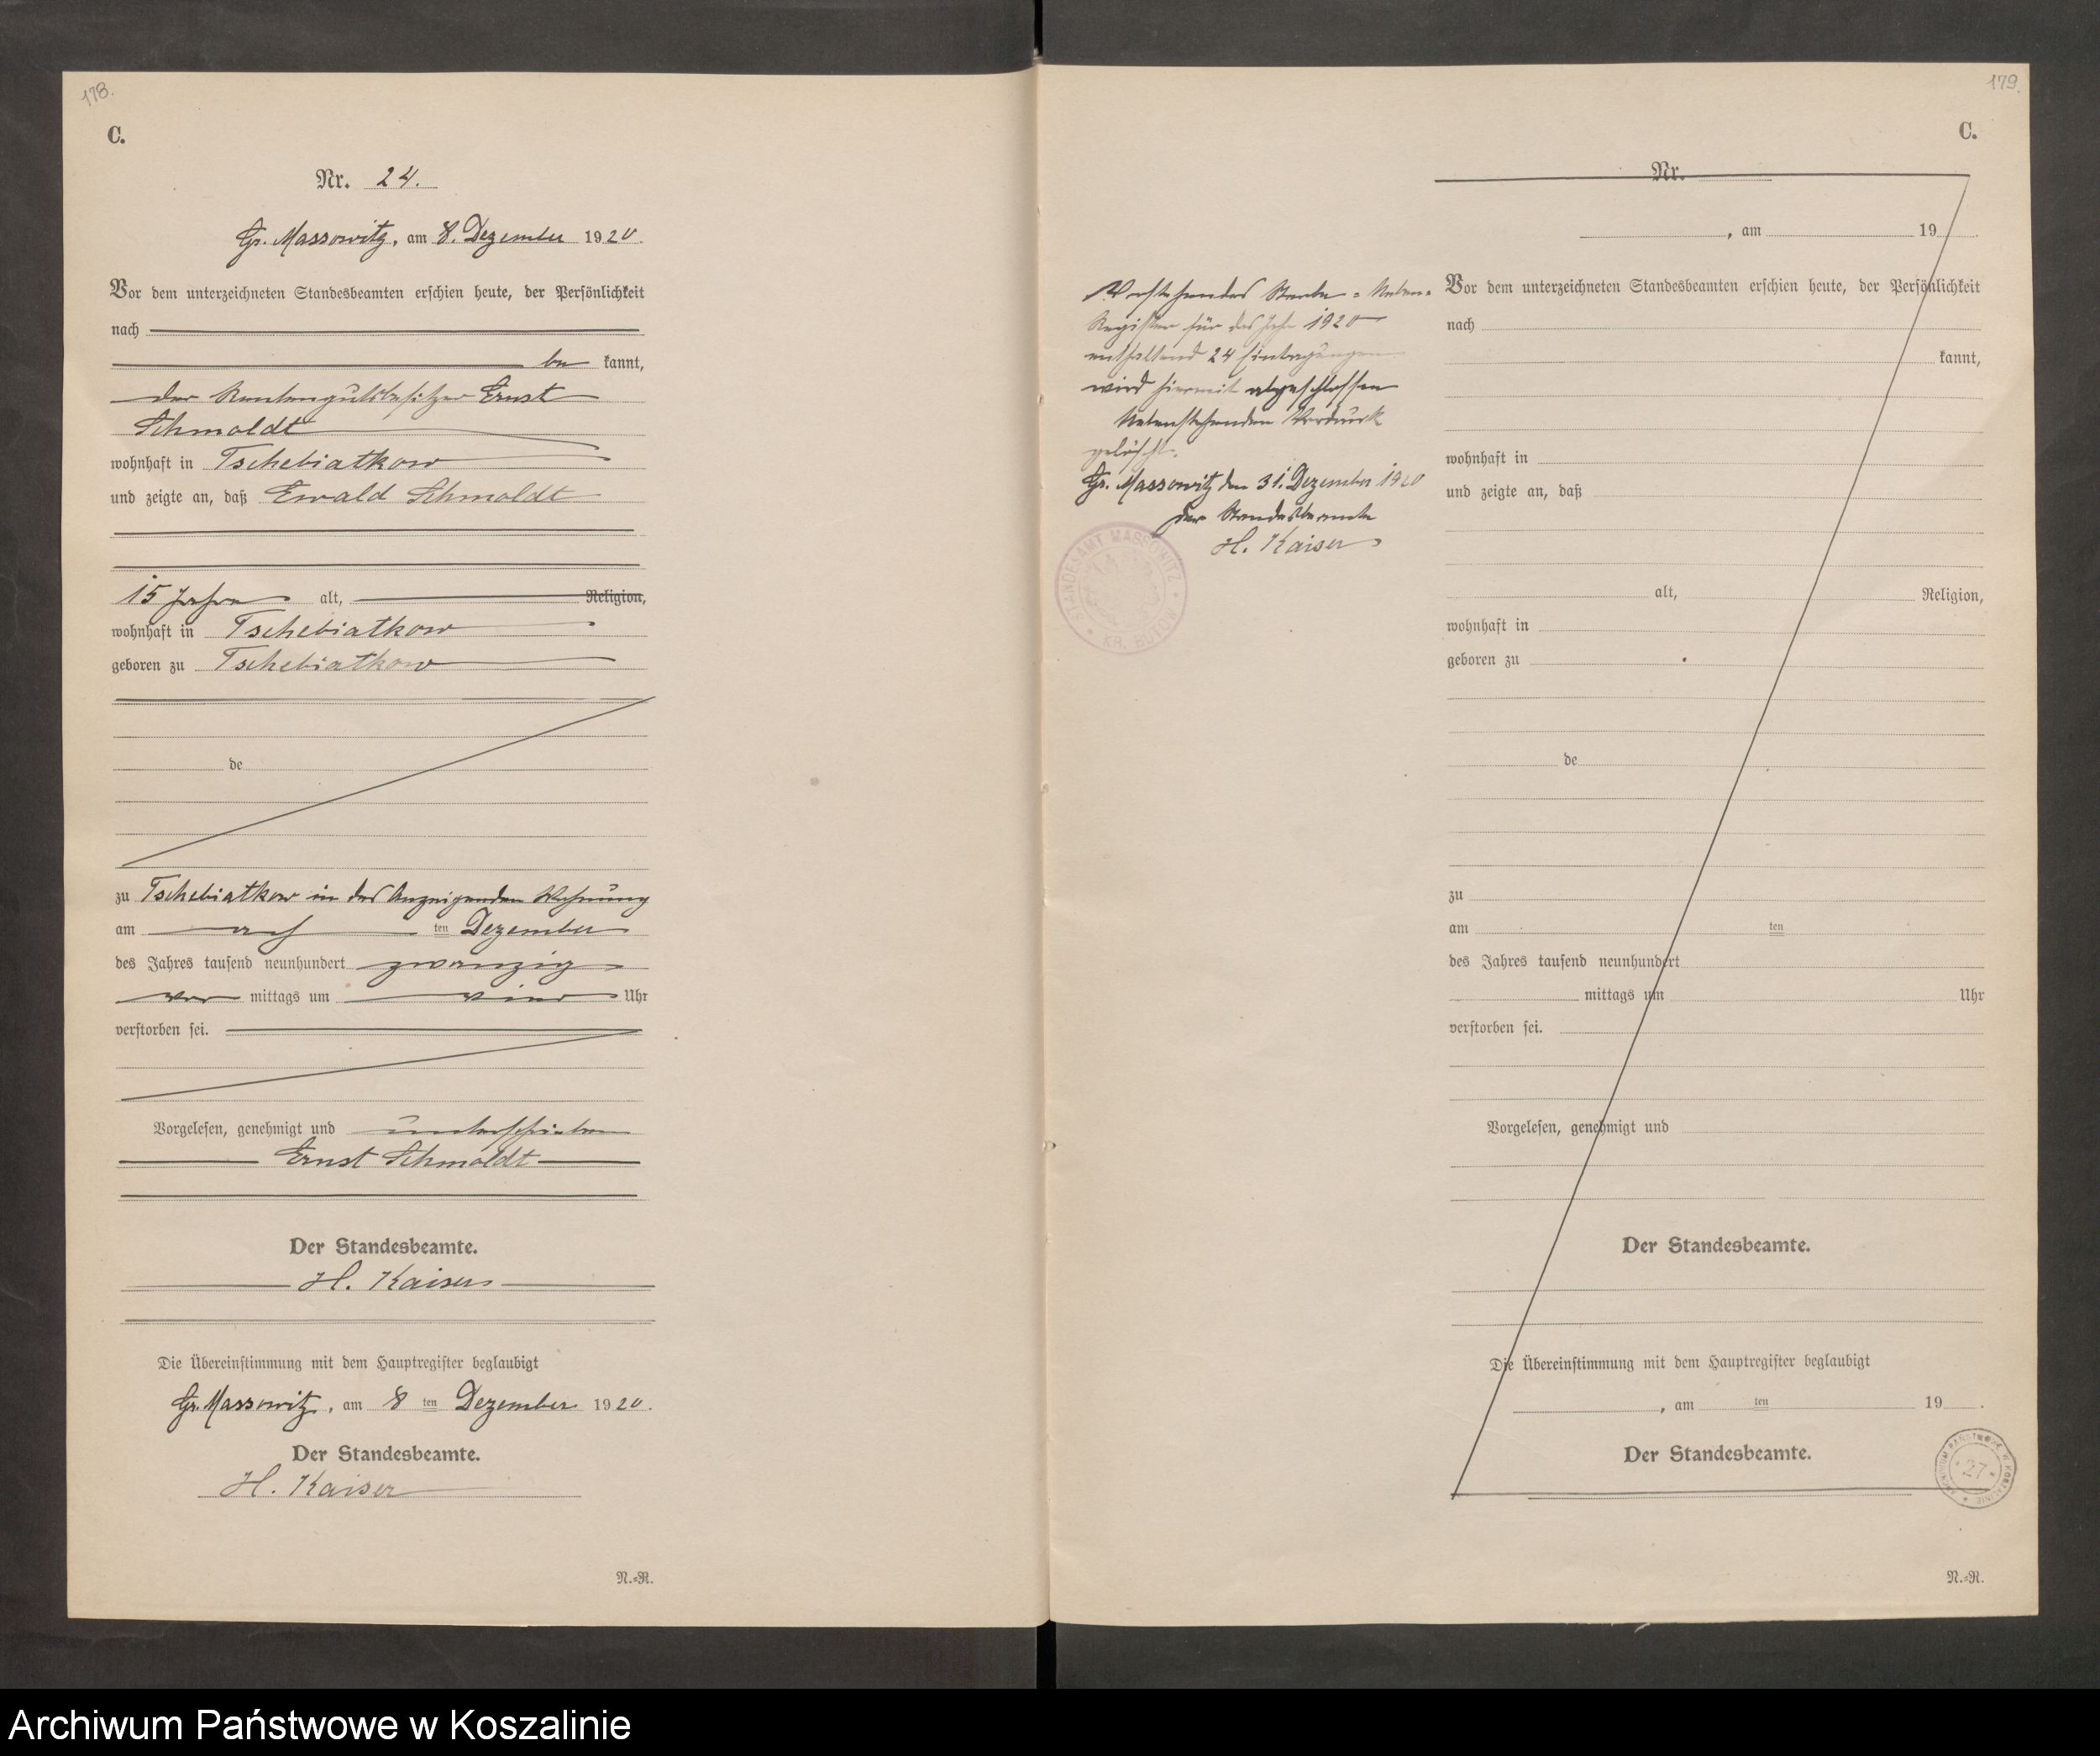 178.
C.
Nr. 24.
Gr. Massowitz, am 8. Dezember 1920.
Vor dem unterzeichneten Standesbeamten erschien heute, der Persönlichkeit
nach
be kannt,
der Rentengutsbesitzer Ernst
Schmoldt
wohnhaft in Tschebiatkow
und zeigte an, daß Ewald Schmoldt
15 Jahre alt, Religion,
wohnhaft in Tschebiatkow
geboren zu Tschebiatkow
de
zu Tschebiatkow in des Anzeigenden Wohnung
am acht ten Dezember
des Jahres tausend neunhundert zwanzig
vor mittags um vier Uhr
verstorben sei.
Vorgelesen, genehmigt und unterschrieben
Ernst Schmoldt
Der Standesbeamte.
H. Kaiser
Die Übereinstimmung mit dem Hauptregister beglaubigt
Gr. Massowitz, am 8 ten Dezember 1920.
Der Standesbeamte.
H. Kaiser
N.=R.
179.
C.
Vorstehendes Sterbe=Neben=
Register für das Jahr 1920
enthaltend 24 Eintragungen
wird hiermit abgeschlossen
Nebenstehenden Vordruck
gelöscht.
Gr. Massowitz den 31. Dezember 1920
Der Standesbeamte
H. Kaiser
STANDESAMT MASSOWITZ
KR. BÜTOW
Nr.
, am 19 .
Vor dem unterzeichneten Standesbeamten erschien heute, der Persönlichkeit
nach
kannt,
wohnhaft in
und zeigte an, daß
alt, Religion,
wohnhaft in
geboren zu
de
zu
am ten
des Jahres tausend neunhundert
mittags um Uhr
verstorben sei.
Vorgelesen, genehmigt und
Der Standesbeamte.
Die Übereinstimmung mit dem Hauptregister beglaubigt
, am ten 19 .
Der Standesbeamte.
ARCHIWUM PAŃSTWOWE W KOSZALINIE
27
N.=R.
Archiwum Państwowe w Koszalinie